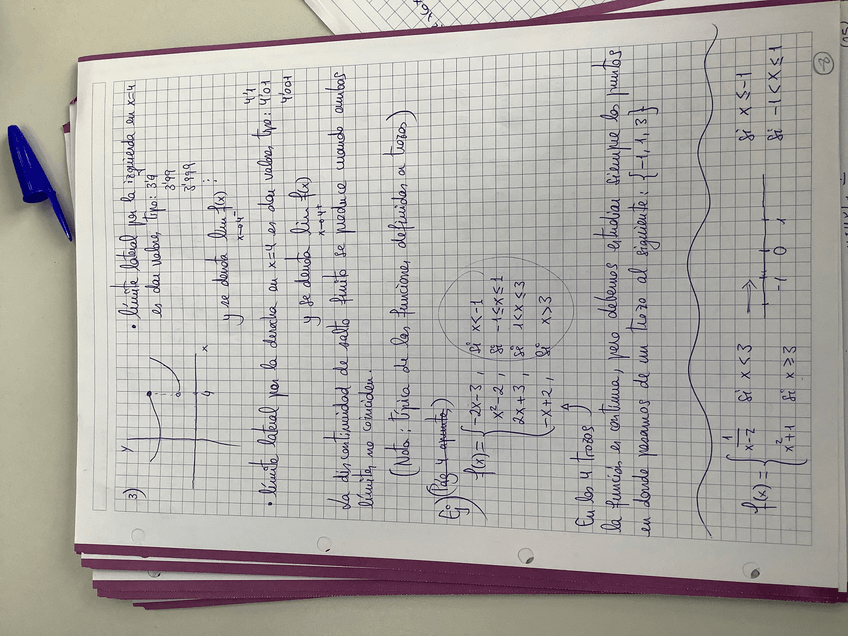 3)
y
x
4
• límite lateral por la izquierda en x=4
es dar valores, tipo: 3'9
3'99
3'999
⋮
y se denota lim f(x)
x→4⁻
• límite lateral por la derecha en x=4 es dar valores tipo: 4'1
4'01
4'001
y se denota lim f(x)
x→4⁺
La discontinuidad de salto finito se produce cuando ambos
límites no coinciden.
(Nota: típica de las funciones definidas a trozos)
Ej) (Pág 4 apuntes)
f(x) = { -2x-3 , si x<-1
x²-2 , si -1≤x≤1
2x+3 , si 1<x≤3
-x+2 , si x>3
En los 4 trozos
la función es continua, pero debemos estudiar siempre los puntos
en donde pasamos de un trozo al siguiente: {-1, 1, 3}
f(x) = { 1/(x-2) si x<3
x²+1 si x≥3
⇒
-1 0 1
si x≤-1
si -1<x≤1